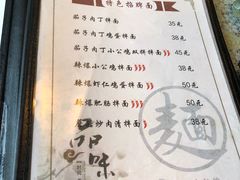 特色招牌面
茄子肉丁拌面 35元
茄子肉丁鸡蛋拌面 38元
茄子肉丁小公鸡双拼拌面 45元
辣爆小公鸡拌面 38元
辣爆虾仁鸡蛋拌面 50元
辣爆肥肠拌面 50元
炒肉清拌面 38元
品味
麵